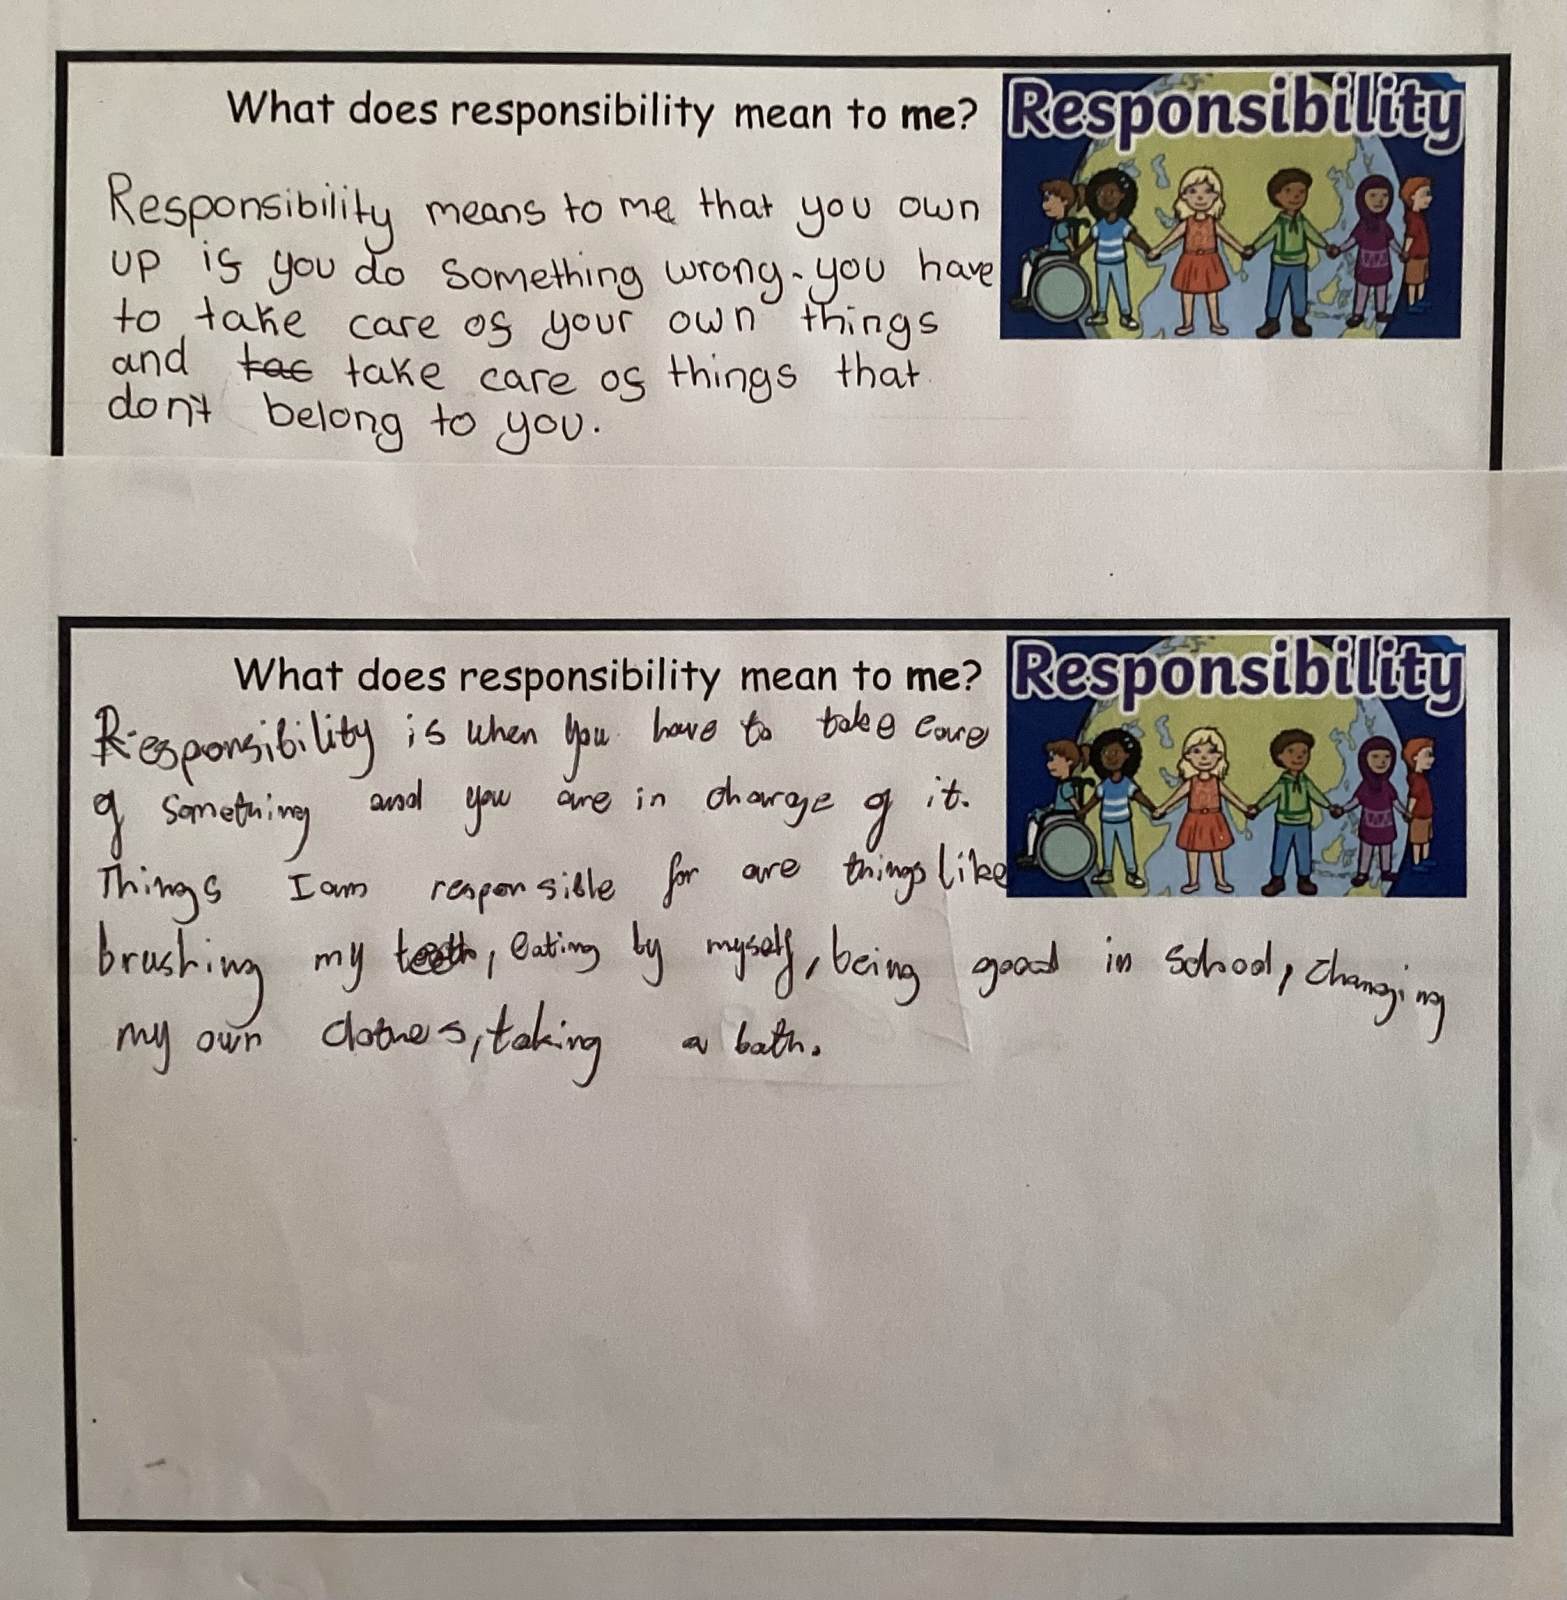 What does responsibility mean to me?
Responsibility
Responsibility means to me that you own
up if you do something wrong. you have
to take care of your own things
and tac take care of things that
don't belong to you.
What does responsibility mean to me?
Responsibility
Responsibility is when you have to take care
of something and you are in charge of it.
Things I am responsible for are things like
brushing my teeth, eating by myself, being good in school, changing
my own clothes, taking a bath.